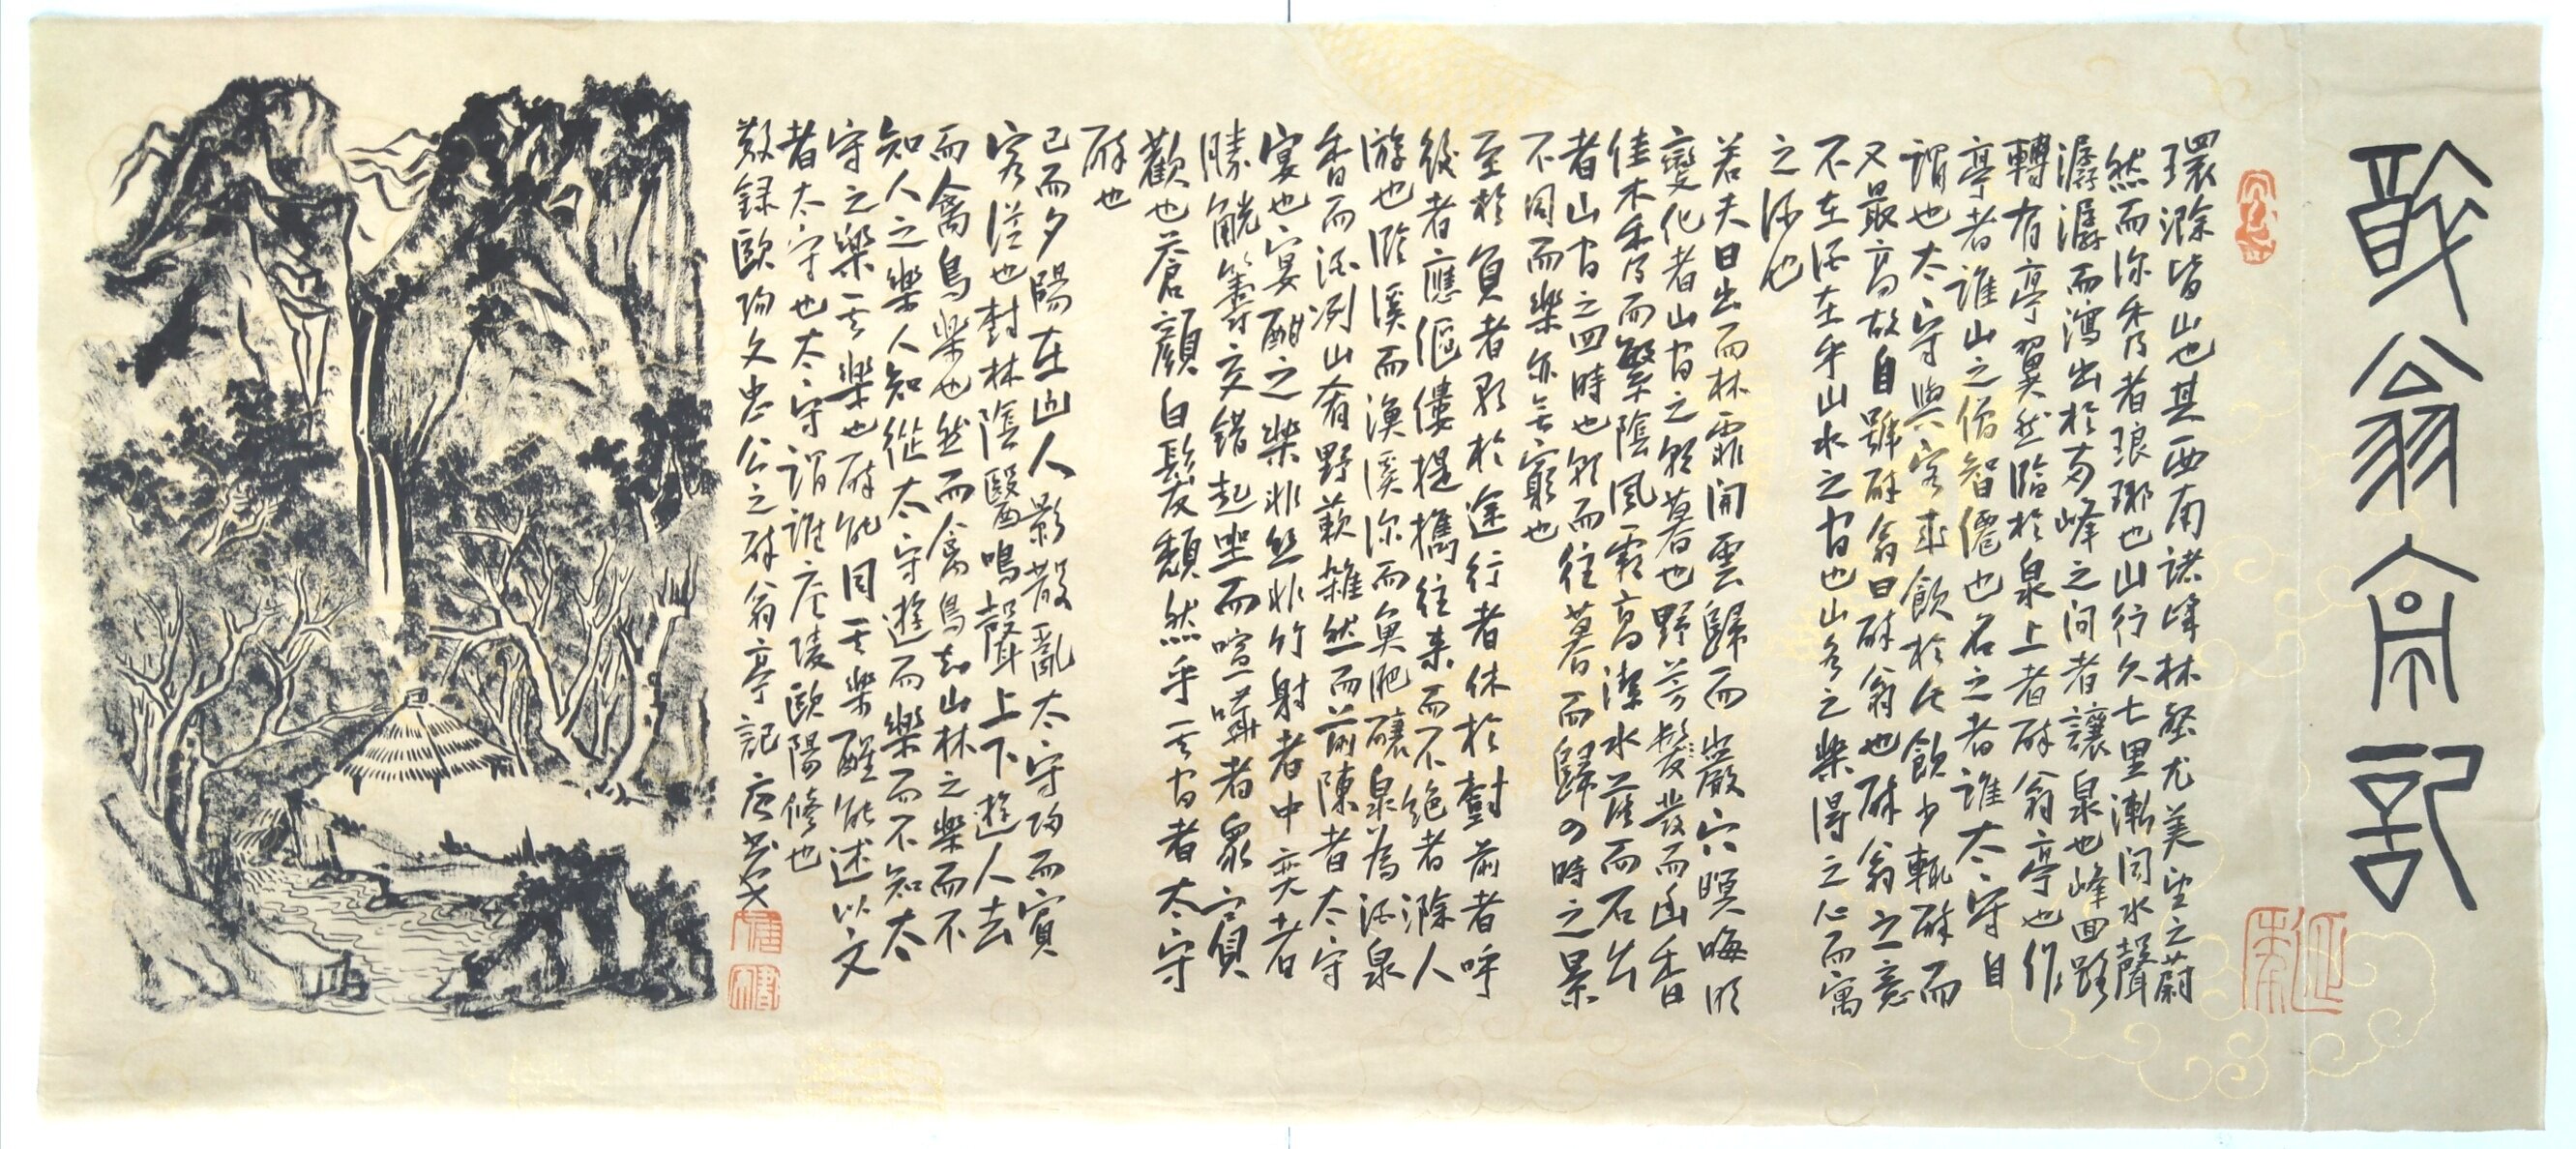 醉翁亭記
環滁皆山也其西南諸峰林壑尤美望之蔚
然而深秀者琅琊也山行六七里漸聞水聲
潺潺而瀉出於兩峰之間者讓泉也峰回路
轉有亭翼然臨於泉上者醉翁亭也作
亭者誰山之僧智僊也名之者誰太守自
謂也太守與客來飲於此飲少輒醉而
又最高故自號醉翁曰醉翁也醉翁之意
不在酒在乎山水之間也山水之樂得之心而寓
之酒也
若夫日出而林霏開雲歸而巖穴暝晦明
變化者山間之朝暮也野芳發而幽香
佳木秀而繁陰風霜高潔水落而石出
者山間之四時也朝而往暮而歸四時之景
不同而樂亦無窮也
至於負者歌於途行者休於樹前者呼
後者應傴僂提攜往來而不絕者滁人
游也臨溪而漁溪深而魚肥釀泉為酒泉
香而酒洌山肴野蔌雜然而前陳者太守
宴也宴酣之樂非絲非竹射者中奕者
勝觥籌交錯起坐而喧嘩者眾賓
歡也蒼顏白髮頹然乎其間者太守
醉也
已而夕陽在山人影散亂太守歸而賓
客從也樹林陰翳鳴聲上下遊人去
而禽鳥樂也然而禽鳥知山林之樂而不
知人之樂人知從太守遊而樂而不知太
守之樂其樂也醉能同其樂醒能述以文
者太守也太守謂誰廬陵歐陽修也
敬録歐陽文忠公之醉翁亭記